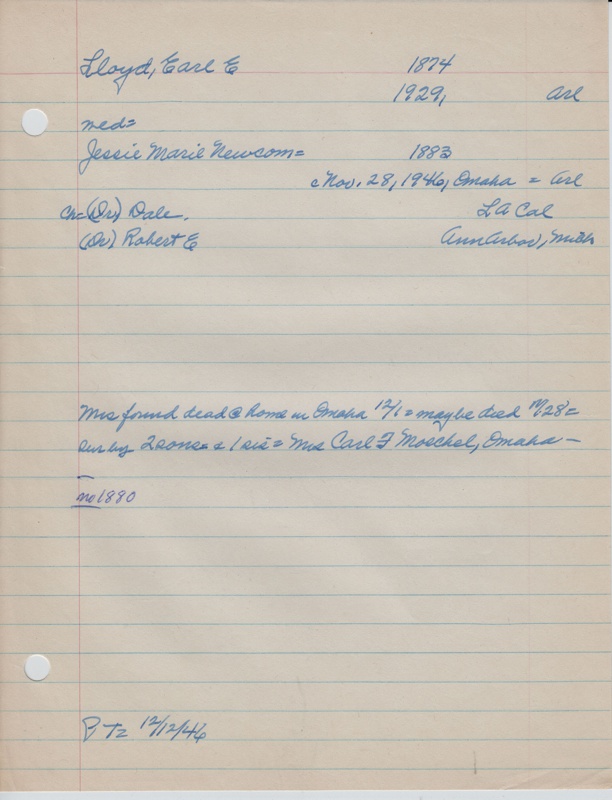 Lloyd, Earl E 1874
1929, Arl
med=
Jessie Marie Newcom= 1883
c Nov. 28, 1946, Omaha = Arl
Ch= (Dr) Dale. LA Cal
(Dr) Robert E Ann Arbor, Mich
Mrs found dead @ home in Omaha 12/1 = maybe died 11/28 =
sur by 2 sons = & 1 sis = Mrs Carl F Moschel, Omaha -
no 1880
P Tz 12/12/46